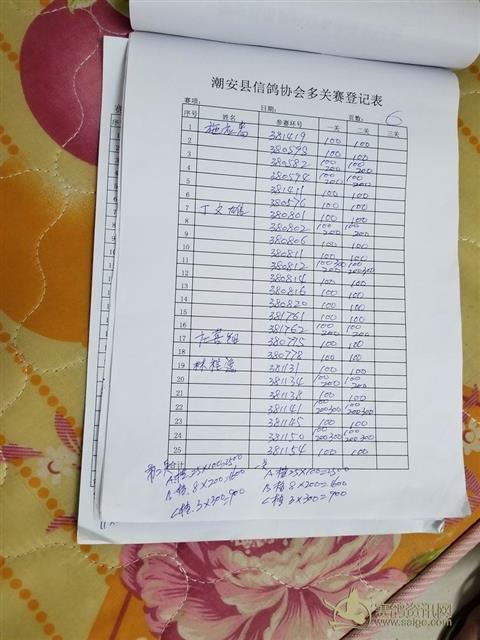 潮安县信鸽协会多关赛登记表
赛项： 日期： 页数： 6
序号 姓名 参赛环号 一关 二关 三关
1 381419 100 100
2 380595 100 100
3 380582 100 200 100 200
4 380594 100 200 100 200
5 381411 100 100
6 380576 100 100
7 丁文雄 380801 100 100
8 380802 100 200 100 200
9 380806 100 100
10 380811 100 100
11 380812 100 300 200 100 200 300
12 380814 100 100
13 380816 100 100
14 380820 100 100
15 381761 100 100
16 381762 100 200 100 200
17 380775 100 100
18 380778 100 100
19 381131 100 100
20 381134 100 200 100 200
21 381138 100 100
22 381141 100 200 300 100 200 300
23 381145 100 100
24 381150 100 200 300 100 200 300
25 381154 100 100
合计
A档 25×100=2500 A档 25×100=2500
B档 8×200=1600 B档 8×200=1600
C档 3×300=900 C档 3×300=900
赛鸽资讯网
www.saige.com